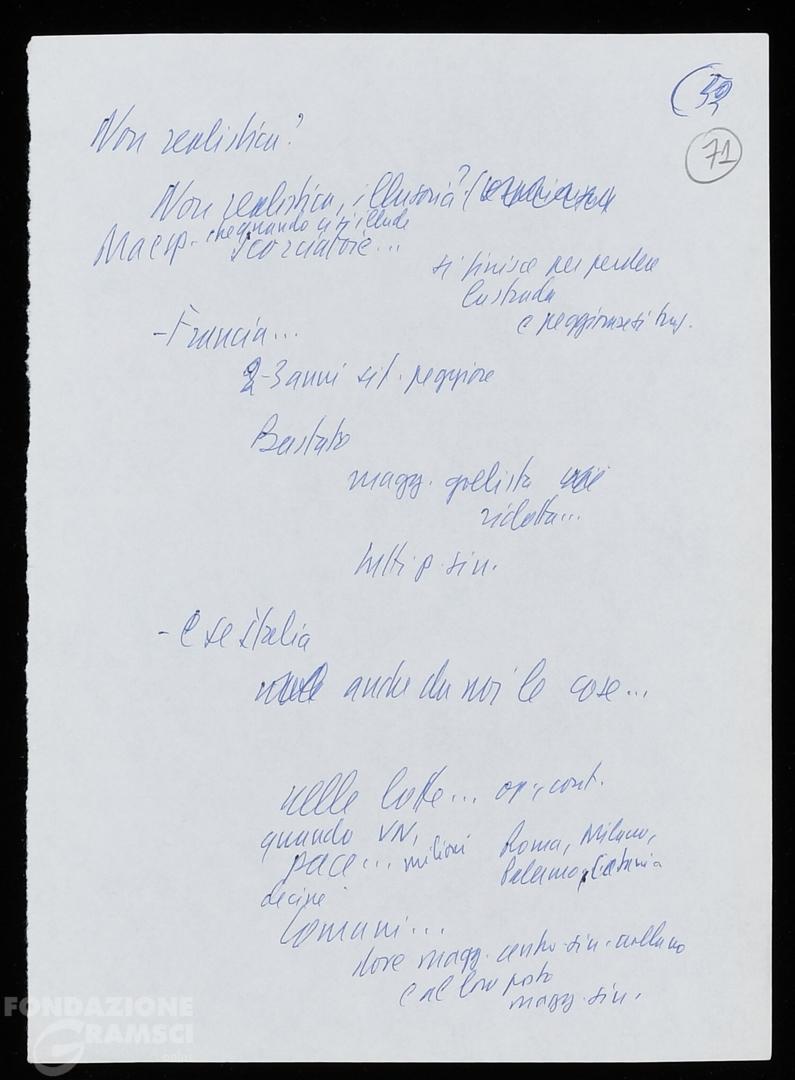 71
Non realistica?
Non realistica, illusoria? (
Ma esp. che quando ci si illude
scorciatoie...
si finisce per perdere
la strada
e peggiorare sit.
- Francia...
2-3 anni sit. peggiore
Bastato
magg. gollista
ridotta...
tutti p. sin.
- E se Italia
anche da noi le cose...
nelle lotte... op., cont.
quando VN,
pace... milioni Roma, Milano,
Palermo, Catania
decine
Comuni...
dove magg. centro-sin. crollano
e al loro posto
magg. sin.
FONDAZIONE
GRAMSCI
onlus